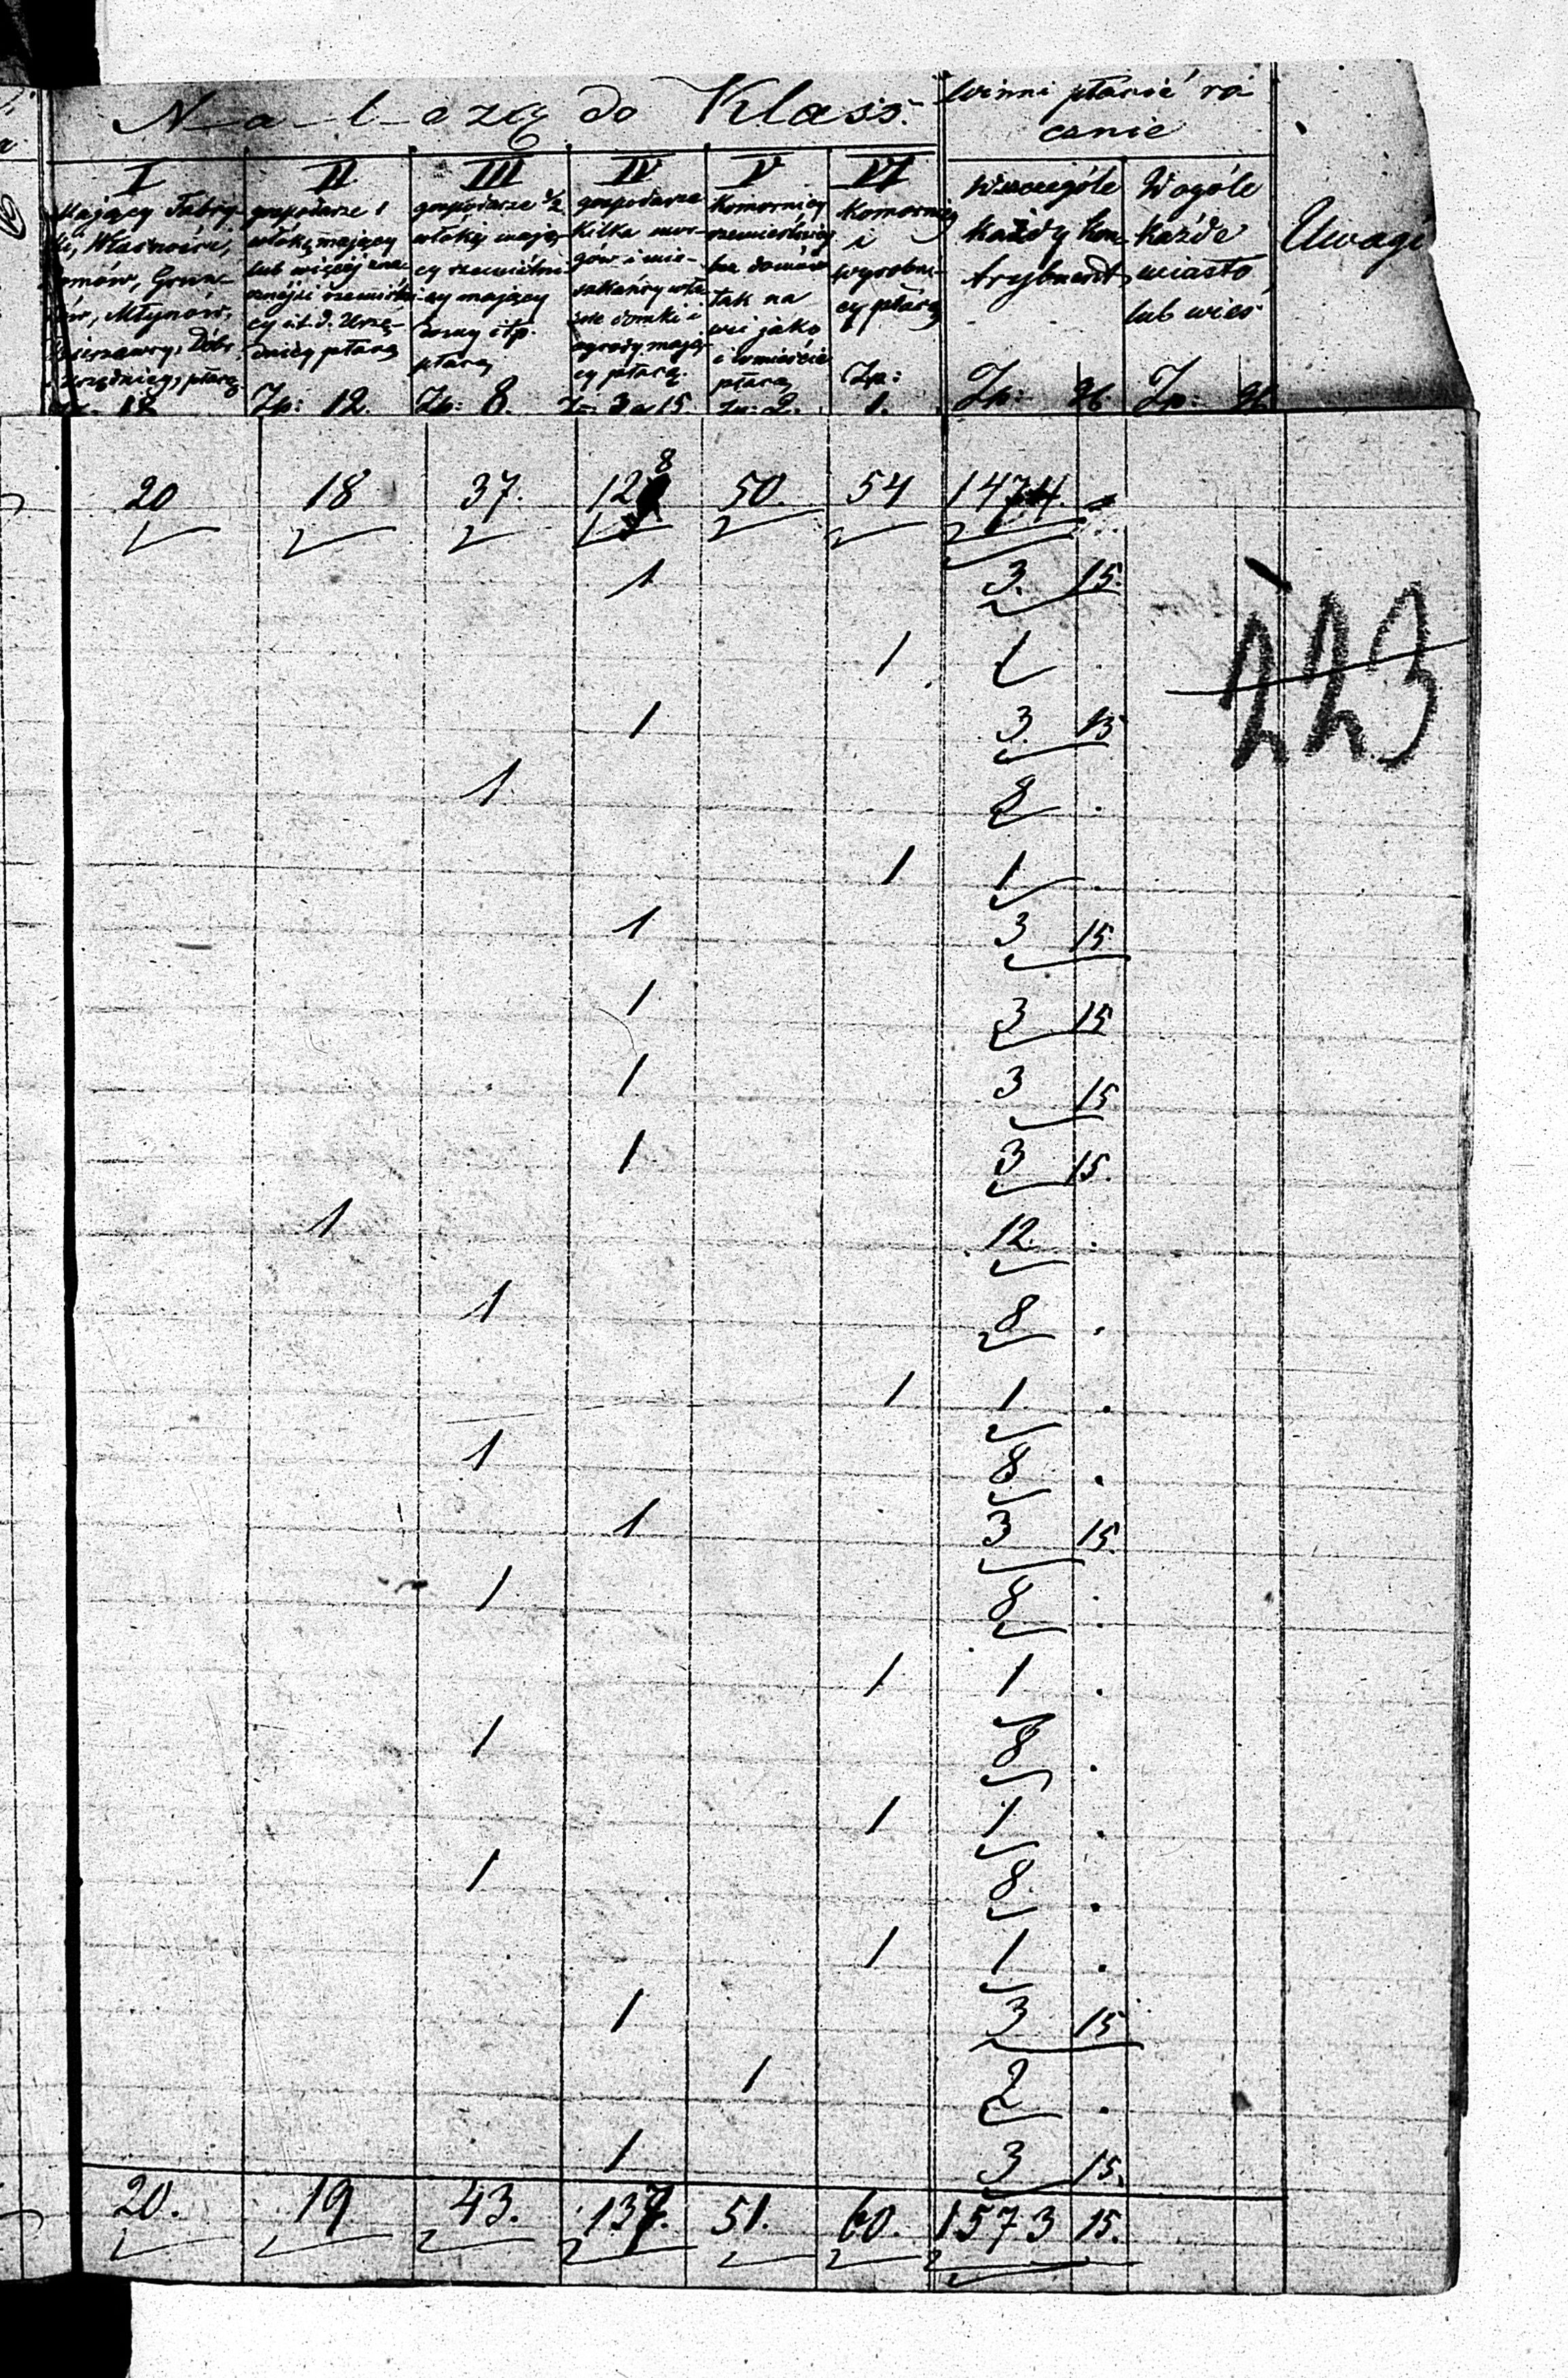 Należą do Klass.
Winni płacić ro
cznie
Uwagi
I
Mający Fabry
ki, Własności,
Domów, Grun-
tów, Młynów,
Dzierzawcy, Dóbr
Urzędnicy, płacą
II
gospodarze 1
włókę mający
lub więcej
cy i t. d. Urzę-
dnicy płacą
Zp: 12.
III
gospodarze 1/2
włóki mają-
cy rzemieślni-
cy mający
domy itp.
płacą
Zp: 8.
IV
gospodarze
kilka mor-
gów i mie-
szkańcy wła-
sne domki i
ogrody mają-
cy płacą.
3 15.
V
Komornicy
rzemieślnicy
bez domów
tak na
wsi jako
i w mieście
płacą
Zp: 2.
VI
Komornicy
i
wyrobni-
cy płacą
Zp:
1.
W szczególe
każdy kon
trybuent
Zp:
W ogóle
każde
miasto
lub wieś
Zp:
20 18 37. 128 50. 54 1474.
1 3. 15.
1 1 .
1 3. 15
1 8 .
1 1 .
1 3 15
1 3 15
1 3 15
1 3 15.
1 12. .
1 8 .
1 1 .
1 8 .
1 3 15
1 8 .
1 1 .
1 8 .
1 1 .
1 8 .
1 1 .
1 3 15
1 2 .
1 3 15.
20. 19 43. 137. 51. 60. 1573 15.
223